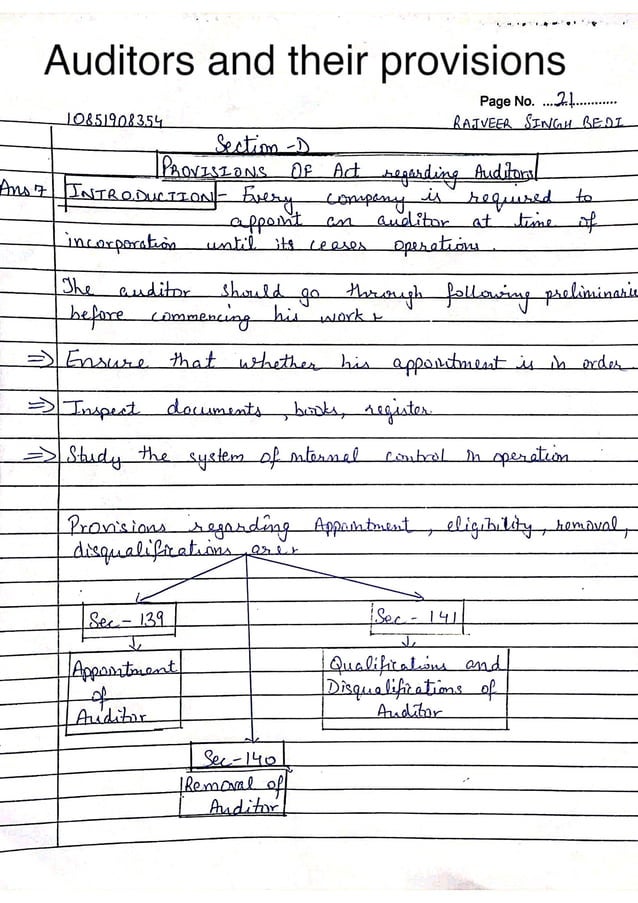 Auditors and their provisions
Page No. ...21............
10851908354 RAJVEER SINGH BEDI
Section -D
PROVISIONS OF Act regarding Auditors
Ans 7 INTRODUCTION - Every company is required to
appoint an auditor at time of
incorporation until its ceases operations.
The auditor should go through following preliminarie
before commencing his work :-
=> Ensure that whether his appointment is in order.
=> Inspect documents, books, register.
=> Study the system of internal control in operation
Provisions regarding Appointment, eligibility, removal,
disqualifications are :-
Sec - 139 Sec - 141
Appointment Qualifications and
of Disqualifications of
Auditor Auditor
Sec-140
Removal of
Auditor